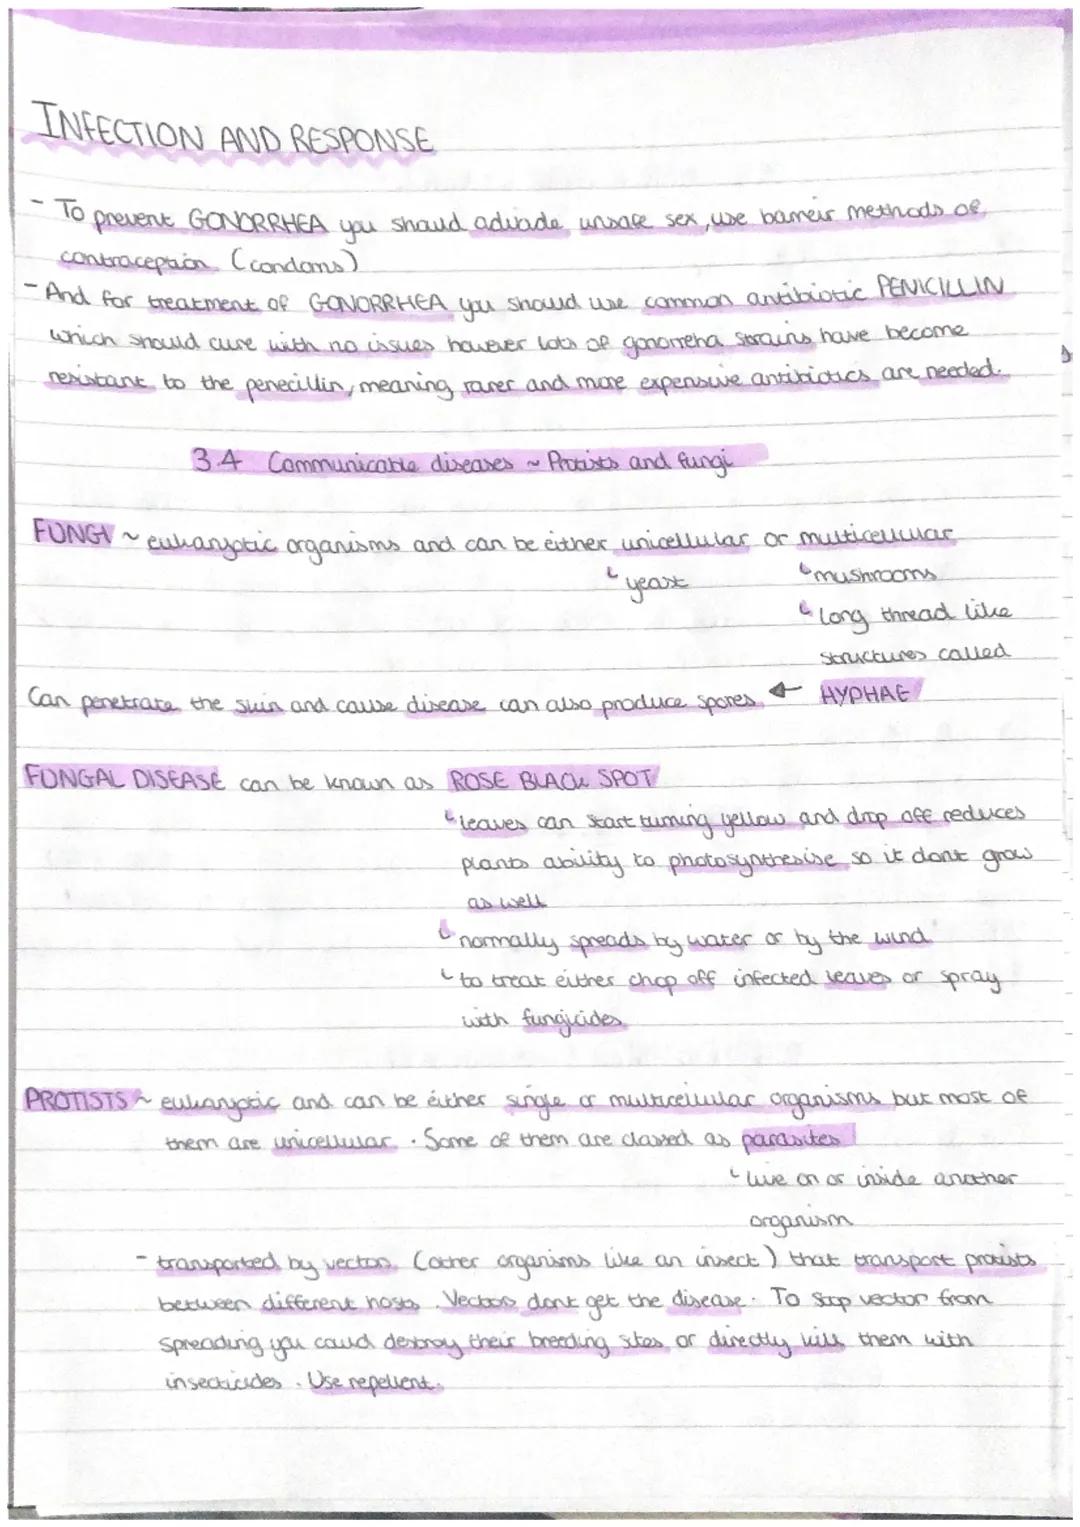 INFECTION AND RESPONSE
- To prevent GONORRHEA you should advoide unsafe sex, use barreir methods of
contraception (condoms)
- And for treatment of GONORRHEA you should use common antibiotic PENICILLIN
which should cure with no issues however lots of gonorreha strains have become
resistant to the penecillin, meaning rarer and more expensive antibiotics are needed.
3.4 Communicable diseases ~ Protists and fungi
FUNGI ~ eukaryotic organisms and can be either unicellular or multicellular
↳ yeast ↳ mushrooms
↳ long thread like
structures called
Can penetrate the skin and cause disease can also produce spores ← HYPHAE
FUNGAL DISEASE can be known as ROSE BLACK SPOT
↳ leaves can start turning yellow and drop off reduces
plants ability to photosynthesise so it dont grow
as well
↳ normally spreads by water or by the wind
↳ to treat either chop off infected leaves or spray
with fungicides
PROTISTS ~ eukaryotic and can be either single or multicellular organisms but most of
them are unicellular. Some of them are classed as parasites
↳ live on or inside another
organism
- transported by vectors (other organisms like an insect) that transport protists
between different hosts. Vectors dont get the disease. To stop vector from
spreading you could destroy their breeding sites or directly kill them with
insecticides. Use repellent.